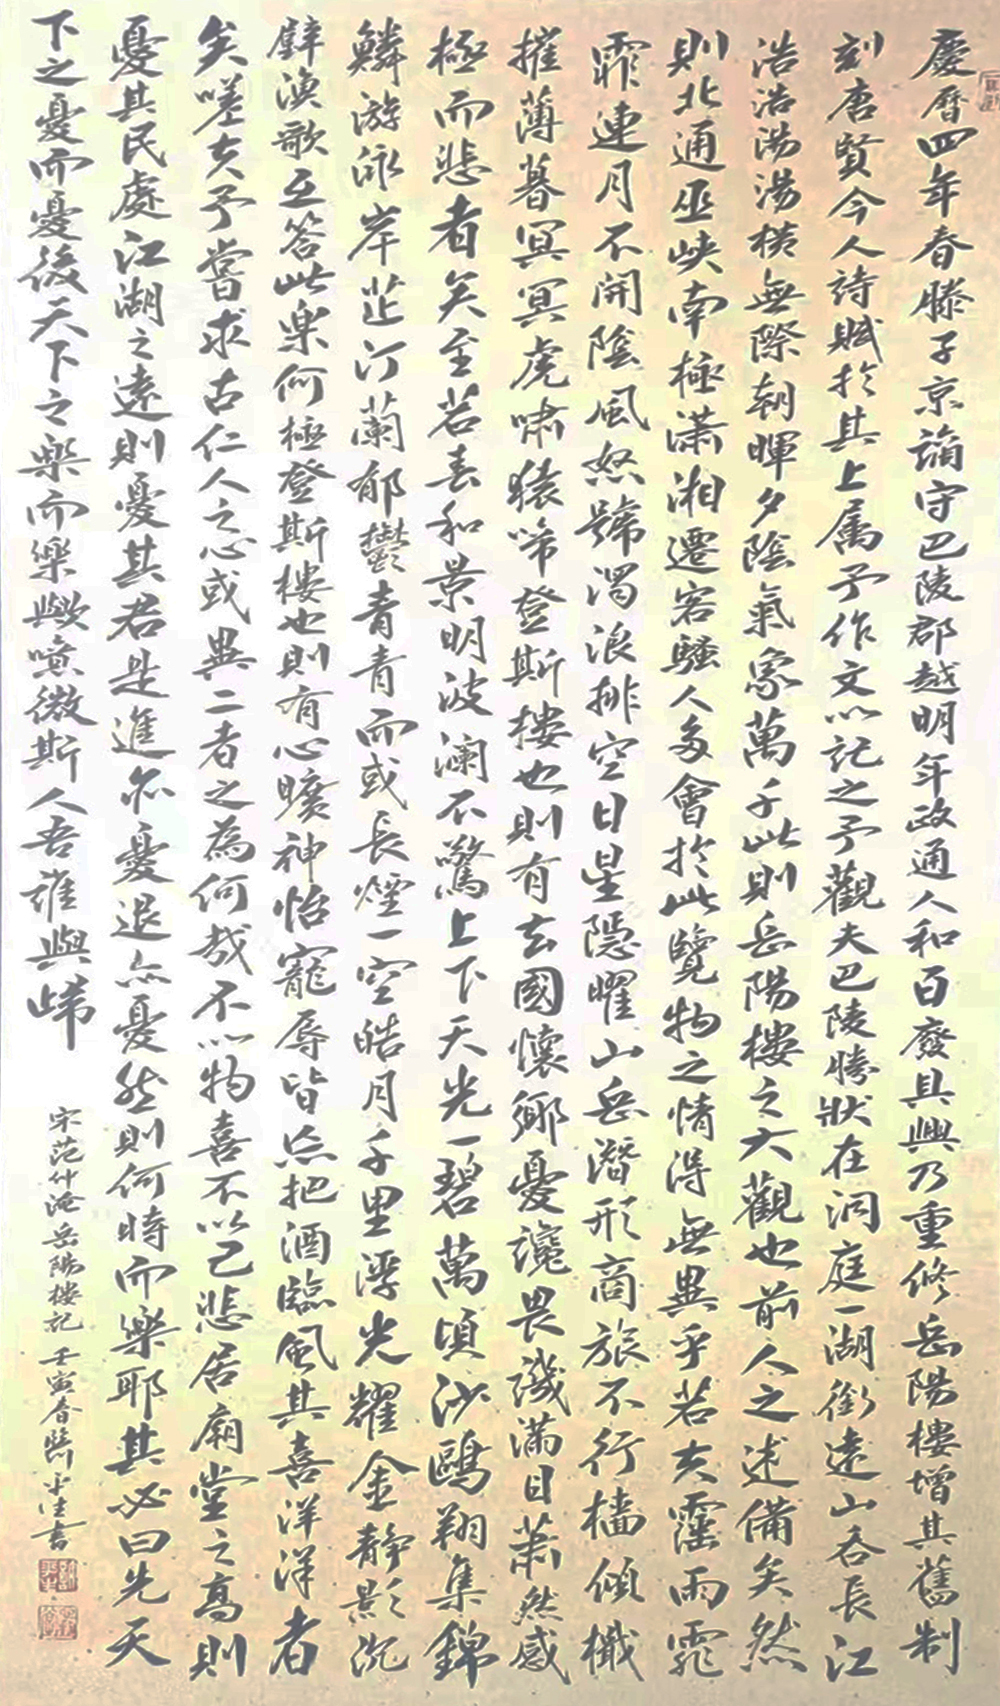 慶曆四年春滕子京謫守巴陵郡越明年政通人和百廢具興乃重修岳陽樓增其舊制
刻唐賢今人詩賦於其上属予作文以記之予觀夫巴陵勝狀在洞庭一湖銜遠山吞長江
浩浩湯湯橫無際朝暉夕陰氣象萬千此則岳陽樓之大觀也前人之述備矣然
則北通巫峽南極瀟湘遷客騷人多會於此覽物之情得無異乎若夫霪雨霏
霏連月不開陰風怒號濁浪排空日星隱曜山岳潛形商旅不行檣傾檝
摧薄暮冥冥虎嘯猿啼登斯樓也則有去國懷鄉憂讒畏譏滿目蕭然感
極而悲者矣至若春和景明波瀾不驚上下天光一碧萬頃沙鷗翔集錦
鱗游泳岸芷汀蘭郁鬱青青而或長煙一空皓月千里浮光耀金靜影沉
璧漁歌互答此樂何極登斯樓也則有心曠神怡寵辱皆忘把酒臨風其喜洋洋者
矣嗟夫予嘗求古仁人之心或異二者之為何哉不以物喜不以己悲居廟堂之高則
憂其民處江湖之遠則憂其君是進亦憂退亦憂然則何時而樂耶其必曰先天
下之憂而憂後天下之樂而樂歟噫微斯人吾誰與歸
宋范仲淹岳陽樓記 壬寅春 書